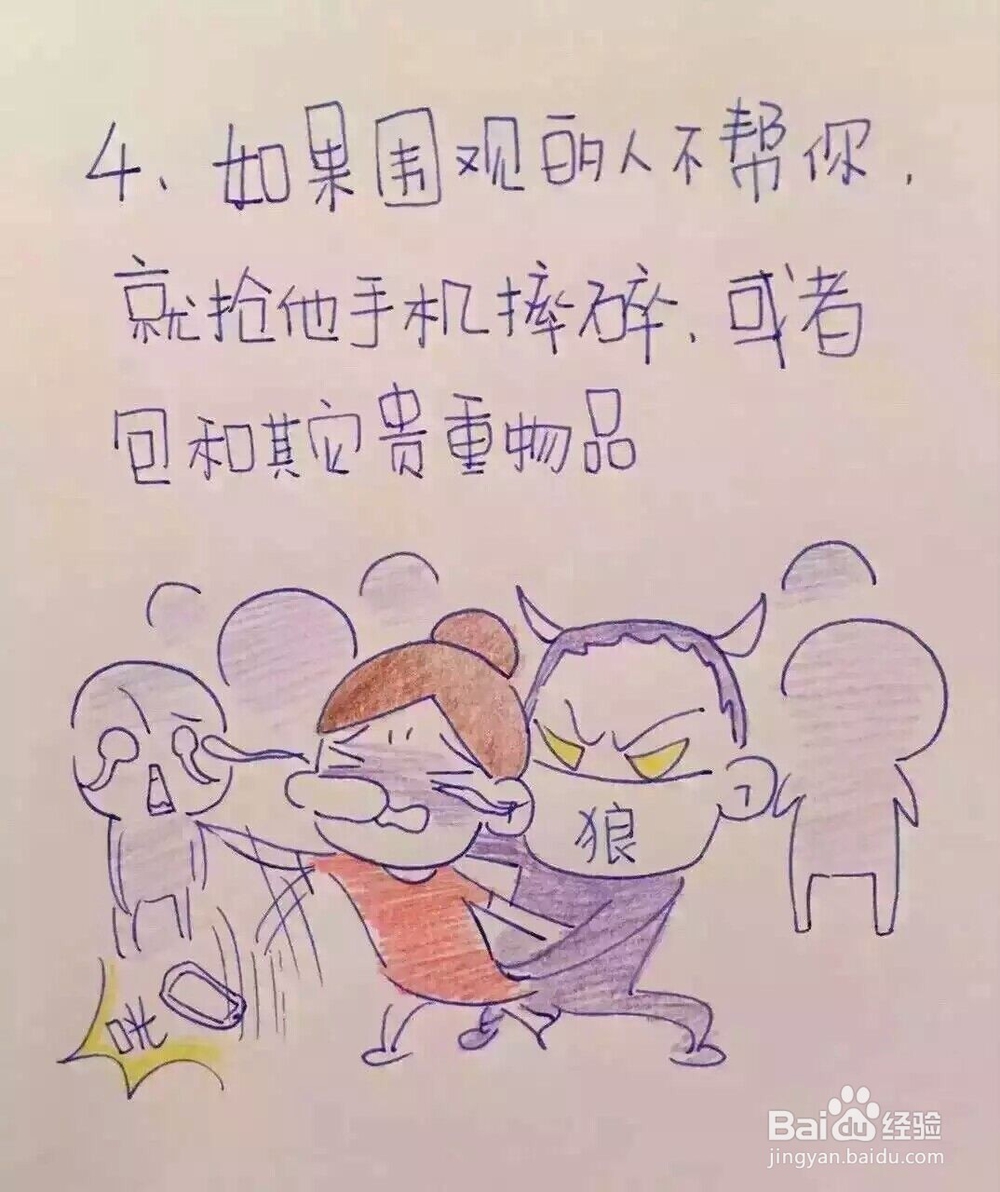 4、如果围观的人不帮你，
就抢他手机摔碎、或者
包和其它贵重物品
狼
咣
Baidu经验
jingyan.baidu.com